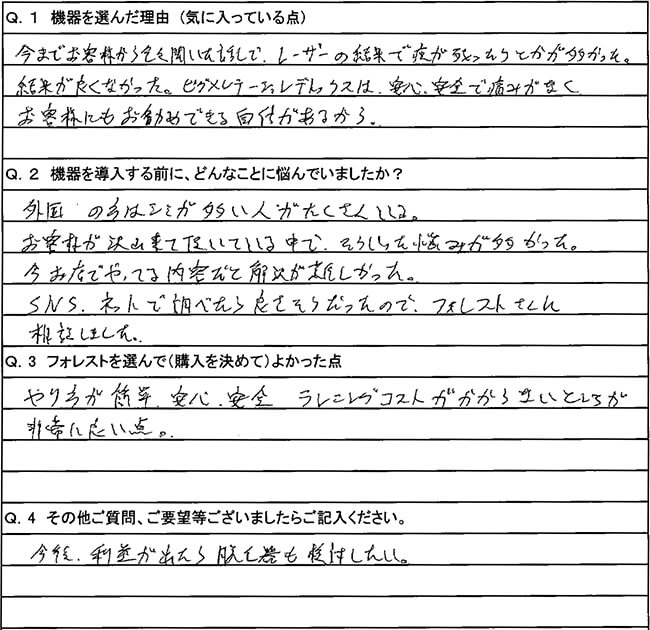 Q. 1 機器を選んだ理由（気に入っている点）
今までお客様から色々聞いた話しで、レーザーの結果で痕が残ったりとかが多かった。
結果が良くなかった。ピグメレーションレデックスは、安心、安全で痛みがなく
お客様にもお勧めできる自信があるから。
Q. 2 機器を導入する前に、どんなことに悩んでいましたか？
外国 の方はシミが多い人がたくさんいる。
お客様が沢山来て頂いている中で、そういった悩みが多かった。
今お店でやってる内容だと解決が難しかった。
SNS、ネットで調べたら良さそうだったので、フォレストさんに
相談しました。
Q. 3 フォレストを選んで（購入を決めて）よかった点
やり方が簡単、安心、安全 ランニングコストがかからないところが
非常に良い点。
Q. 4 その他ご質問、ご要望等ございましたらご記入ください。
今後、利益が出たら脱毛器も検討したい。